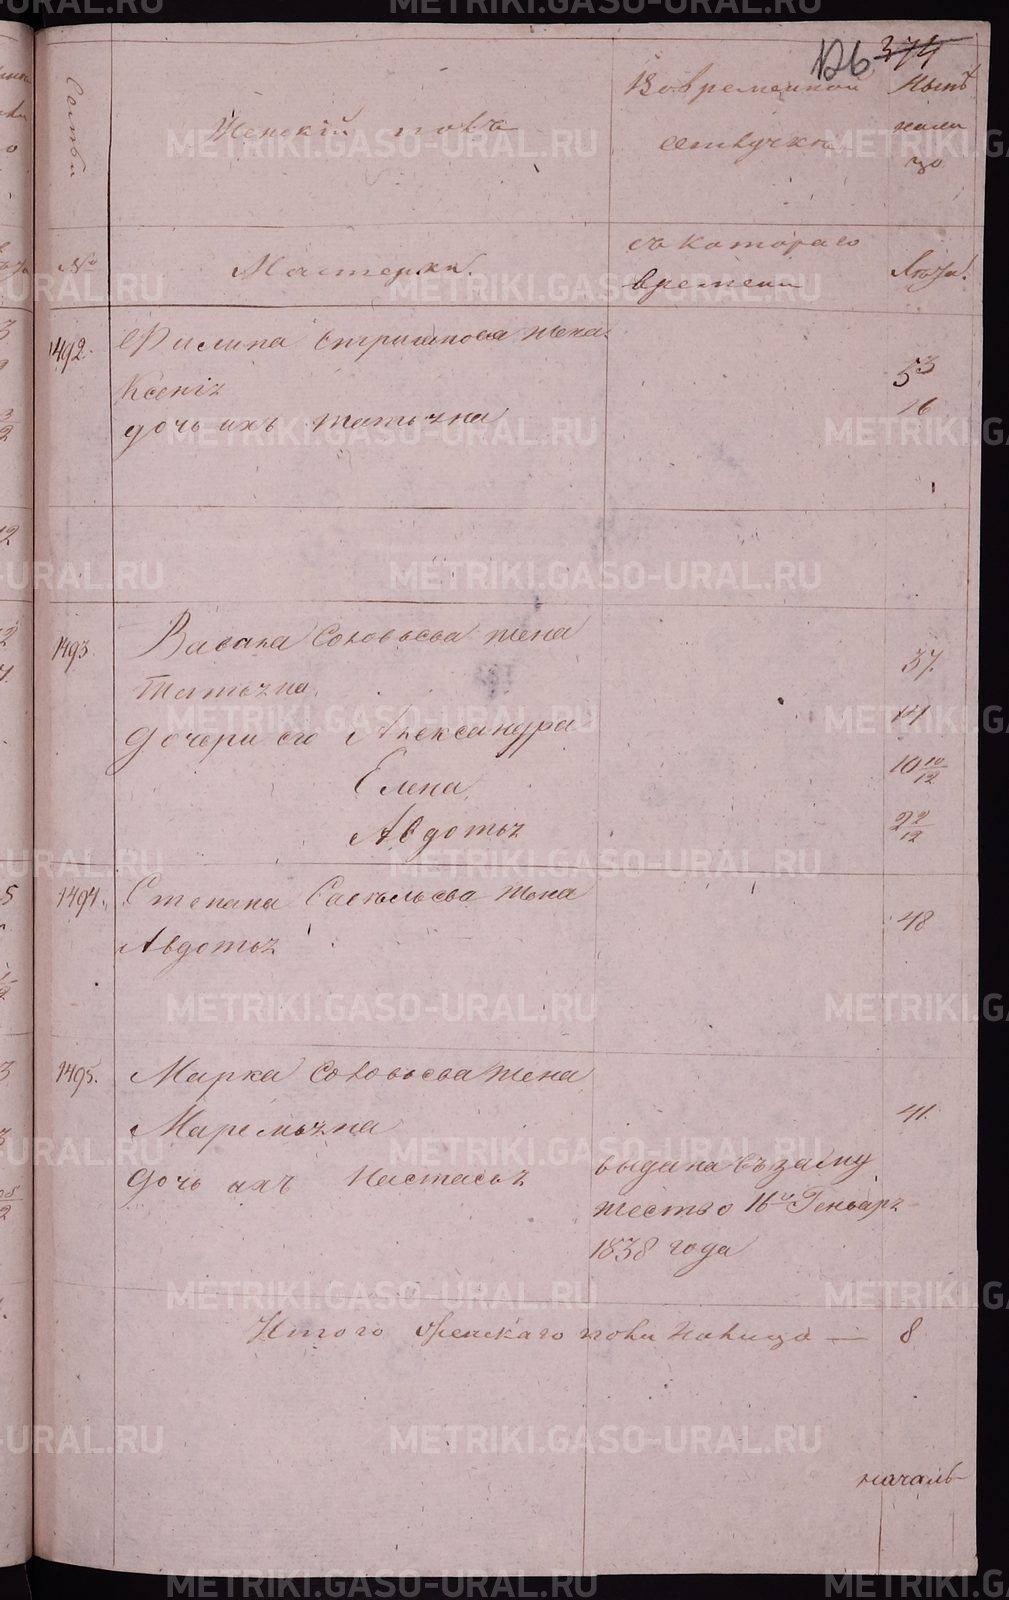 126 374
Семьи
Женскій полъ
Во временной
отлучкѣ
Нынѣ
нали
цо
№
Мастерки.
съ котораго
времени
Лѣта.
1492. Филипа жена
Ксенія 53
дочь ихъ Татьяна 16
1493. Вавила Соловьева жена
Татьяна 37.
дочери его Александра 14
Елена 10 10/12
Авдотья 2 2/12
1494. Степана Савельева жена
Авдотья 48
1495. Марка Соловьева жена
Маремьяна 41.
дочь ихъ Настасья выдана въ заму
жество 16го Генваря
1838 года
Итого Женскаго пола налицо — 8
началь
METRIKI.GASO-URAL.RU